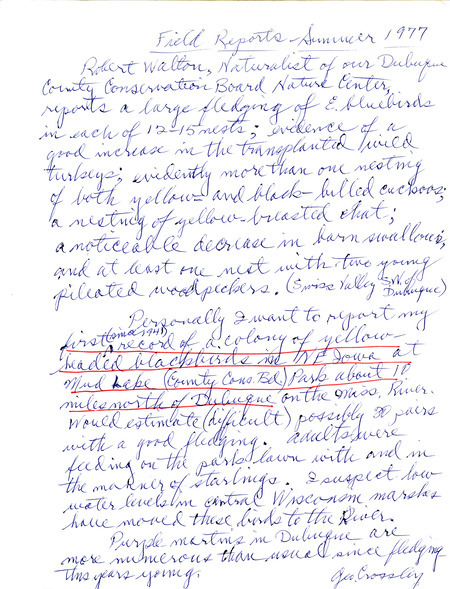 Field Reports - Summer 1977
Robert Walton, Naturalist of our Dubuque
County Conservation Board Nature Center,
reports a large fledging of E. bluebirds
in each of 12-15 nests; evidence of a
good increase in the transplanted wild
turkeys; evidently more than one nesting
of both yellow- and black-billed cuckoos;
a nesting of yellow-breasted chat;
a noticeable decrease in barn swallows,
and at least one nest with two young
pileated woodpeckers. (Swiss Valley S.W. of
Dubuque)
Personally I want to report my
first (since 1941) record of a colony of yellow-
headed blackbirds in NE Iowa at
Mud Lake (County Cons. Bd) Park about 10
miles north of Dubuque on the Miss. River.
Would estimate (difficult) possibly 30 pairs
with a good fledging. Adults were
feeding on the parks lawn with and in
the manner of starlings. I suspect low
water levels in central Wisconsin marshes
have moved these birds to the River.
Purple martins in Dubuque are
more numerous than usual since fledging
this years young.
Geo Crossley